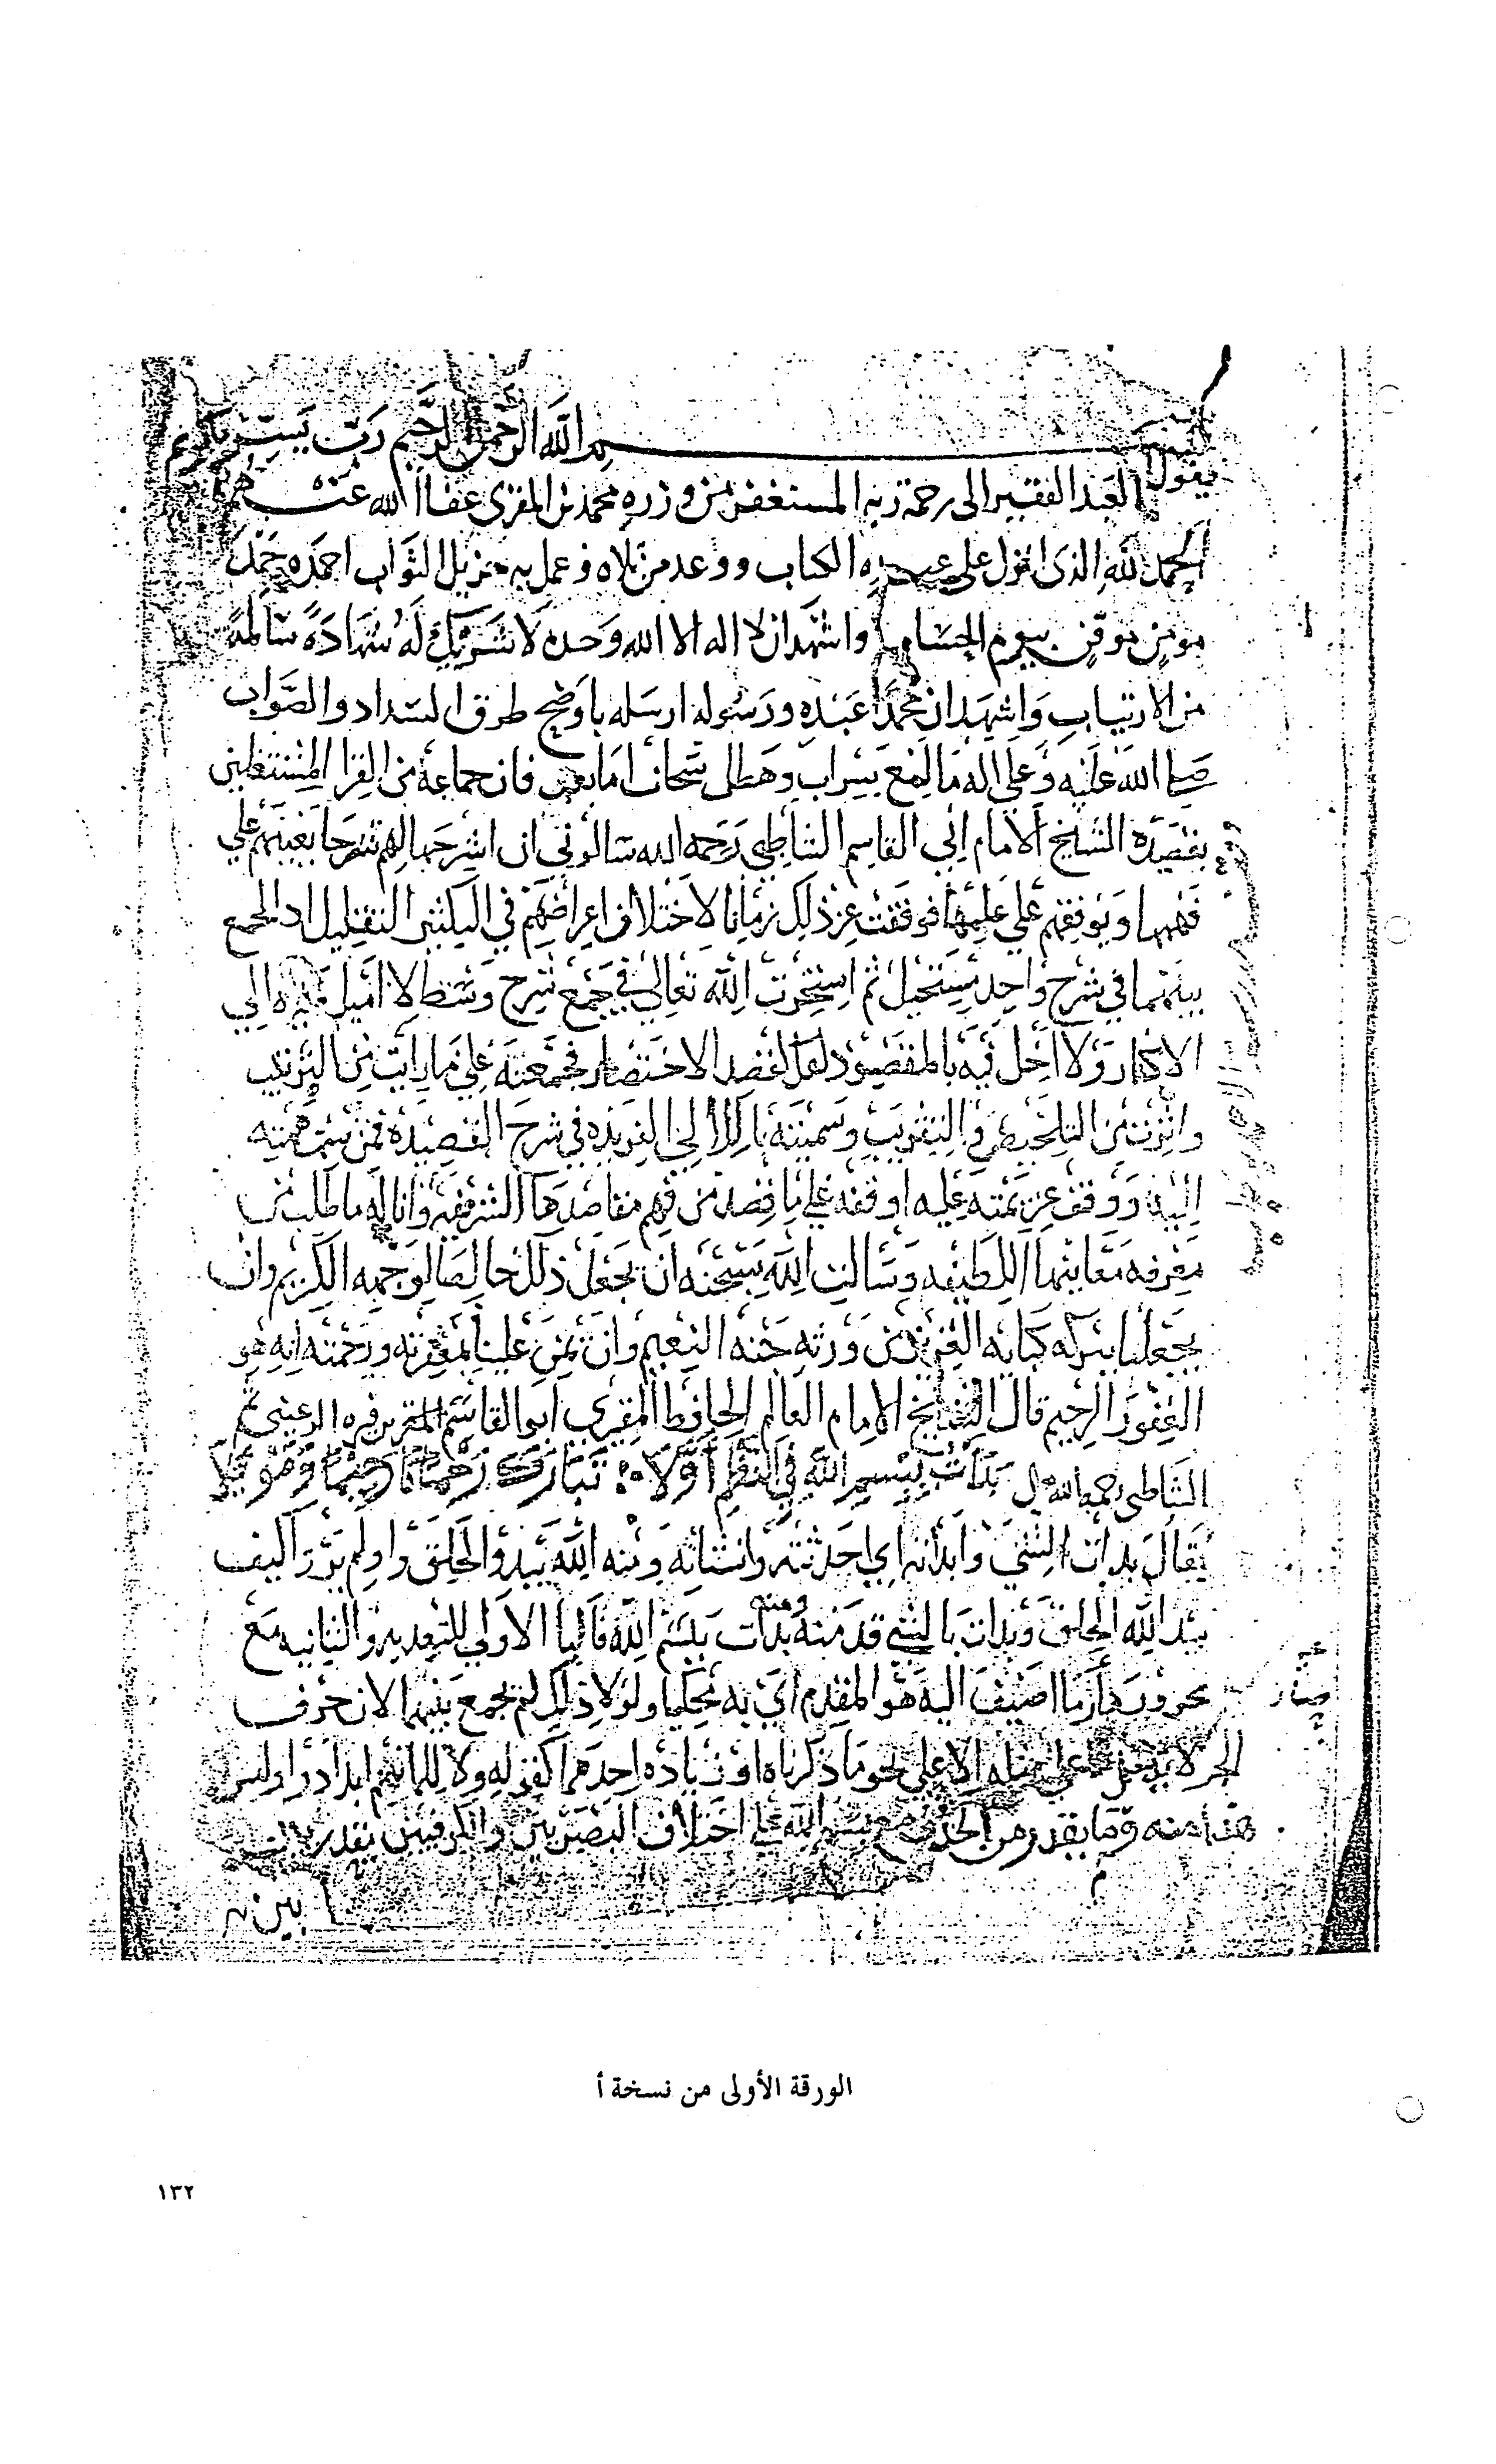 بسم الله الرحمن الرحيم رب يسر يا كريم
يقول العبد الفقير الى رحمة ربه المستغفر من وزره محمد بن المقرى عفا الله عنهم
الحمد لله الذى انزل على عبده الكتاب ووعد من تلاه وعمل به جزيل الثواب احمده حمد
مومن موقن بيوم الحساب واشهد ان لا اله الا الله وحده لا شريك له شهادة سالمة
من الارتياب واشهد ان محمدا عبده ورسوله ارسله باوضح طرق السداد والصواب
صلى الله عليه وعلى اله ما لمع سراب وهطل سحاب اما بعد فان جماعة من القرا المشتغلين
بقصيدة الشيخ الامام ابي القاسم الشاطبي رحمه الله سالوني ان اشرحها لهم شرحا يعينهم على
فهمها ويوقفهم على علمها فوقفت عن ذلك زمانا لاختلاف اعراضهم في التكثير التقليل اذ الجمع
بينهما في شرح واحد مستحيل ثم استخرت الله تعالى في جمع شرح وسط لا اميل فيه الى
الاكثار ولا اخل فيه بالمقصود لقصد الاختصار فجمعته على ما رايت من الترتيب
واثرت من التلخيص والتقريب وسميته باللالى الفريده في شرح القصيدة فمن سمت همته
اليه ووقف عزيمته عليه اوقفه على ما قصد من فهم مقاصدها الشريفه واناله ما طلب من
معرفه معانيها اللطيفه وسالت الله سبحنه ان يجعل ذلك خالصا لوجهه الكريم وان
يجعلنا ببركه كتابه العزيز من ورثه جنه النعيم وان يمن علينا بمغفرته ورحمته انه هو
الغفور الرحيم قال الشيخ الامام العالم الحافظ المقري ابى القاسم بن فيره الرعيني ثم
الشاطبى رحمه الله بدات ببسم الله في النظم اولا تبارك رحمانا رحيما وموئلا
يقال بدات الشي وابداته اي احدثته وانشاته ومنه الله يبدؤ الخلق اولم يروا كيف
يبدا الله الخلق وبدات بالشي قدمته ومنه بدات ببسم الله فالبا الاولى للتعديه والثانيه مع
مجرورها وما اضيف اليه هو المقدم اي به محكيا ولولا ذلك لم يجمع بينهما لان حرف
الجر لا يدخل على مثله الا على نحو ما ذكرناه او زياده احدهما كقوله ولا للما بهم ابدا دوا وليس
هذا منه وما يقدر من الحذف مع بسم الله على اختلاف البصريين والكوفيين يقدر
بين
الورقة الأولى من نسخة أ
١٣٢